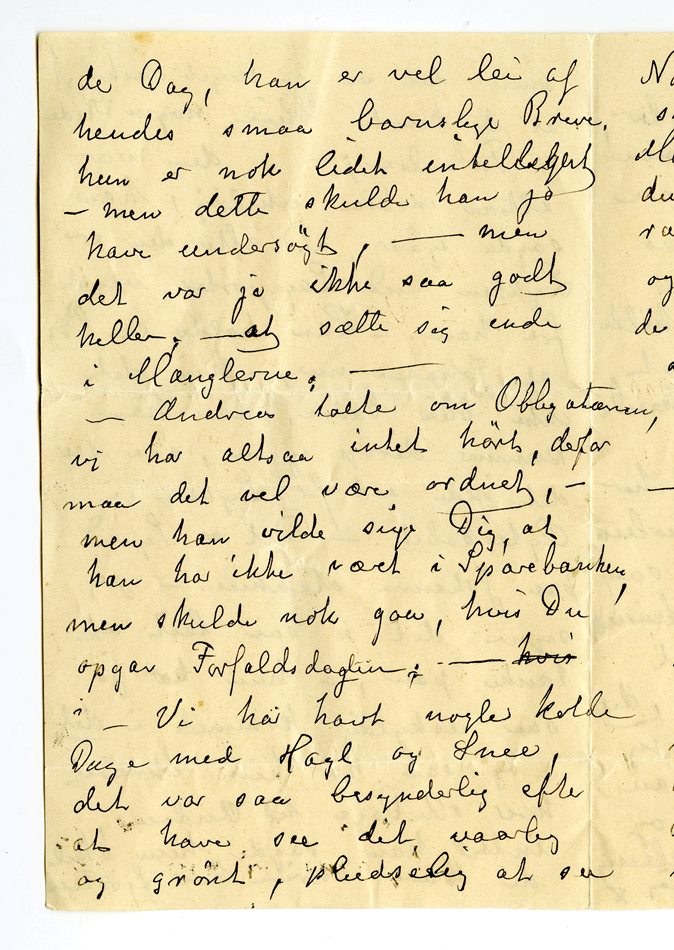 de Dag, han er vel lei af
hendes smaa barnslige Breve,
hun er nok lidet intelligent
– men dette skulde han jo
have undersögt, — men
det var jo ikke saa godt
heller, — at sætte sig inde
i Manglerne. —
— Andreas talte om Obligationen,
vi har altsaa intet hört, derfor
maa det vel være ordnet, –
men han vilde sige Dig, at
han har ikke været i Sparebanken,
men skulde nok gaa, hvis Du
opgav Forfaldsdagen; — hvis
— Vi har havt nogle kolde
Dage med Hagl og Snee,
det var saa besynderlig efter
at have see det vaarlig
og grönt, pludselig at see
No
s
Ma
du
va
og
de